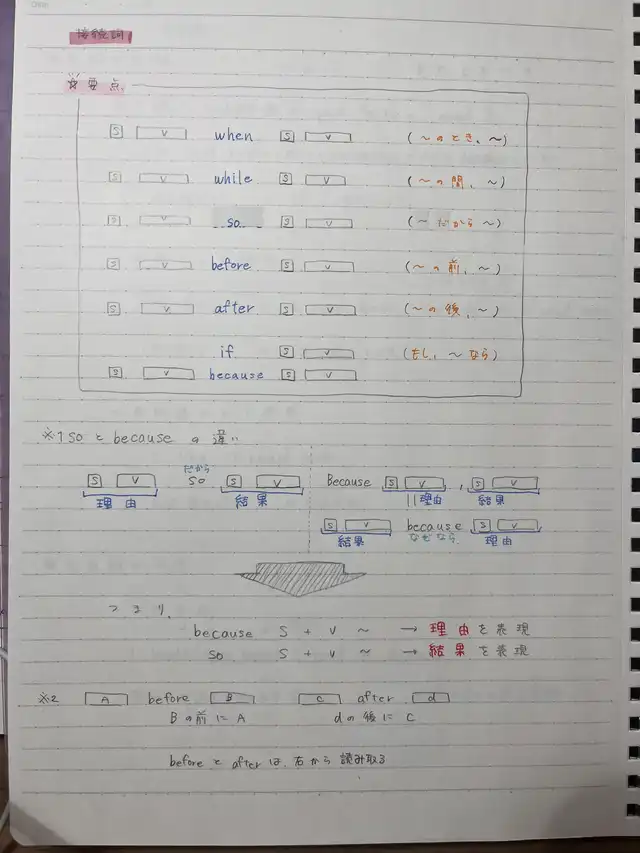 接続詞
☆要点.
S V when S V (〜のとき、〜)
S V while S V (〜の間、〜)
S V so S V (〜だから〜)
S V before S V (〜の前、〜)
S V after S V (〜の後、〜)
if S V (もし、〜なら)
S V because S V
※1 so と because の違い
S V だから so S V Because S V , S V
理由 結果 理由 結果
S V because S V
結果 なぜなら 理由
つまり、
because S + V 〜 → 理由を表現
so S + V 〜 → 結果を表現
※2 A before B C after d
Bの前にA dの後にC
before と after は、右から読み取る